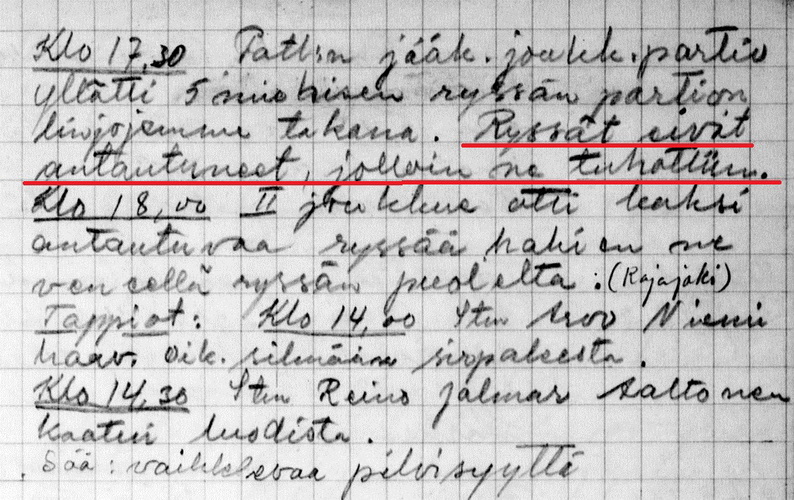 Klo 17,30 Patl:n jääk. joukk. partio
yllätti 5 miehisen ryssän partion
linjojemme takana. Ryssät eivät
antautuneet, jolloin ne tuhottiin.
Klo 18,00 II joukkue otti kaksi
antautuvaa ryssää hakien ne
veneellä ryssän puolelta: (Rajajoki)
Tappiot: Klo 14,00 Stm Arvo Niemi
haav. oik. silmään sirpaleesta.
Klo 14,30 Stm Reino Jalmar Aaltonen
kaatui luodista.
Sää: vaihtelevaa pilvisyyttä